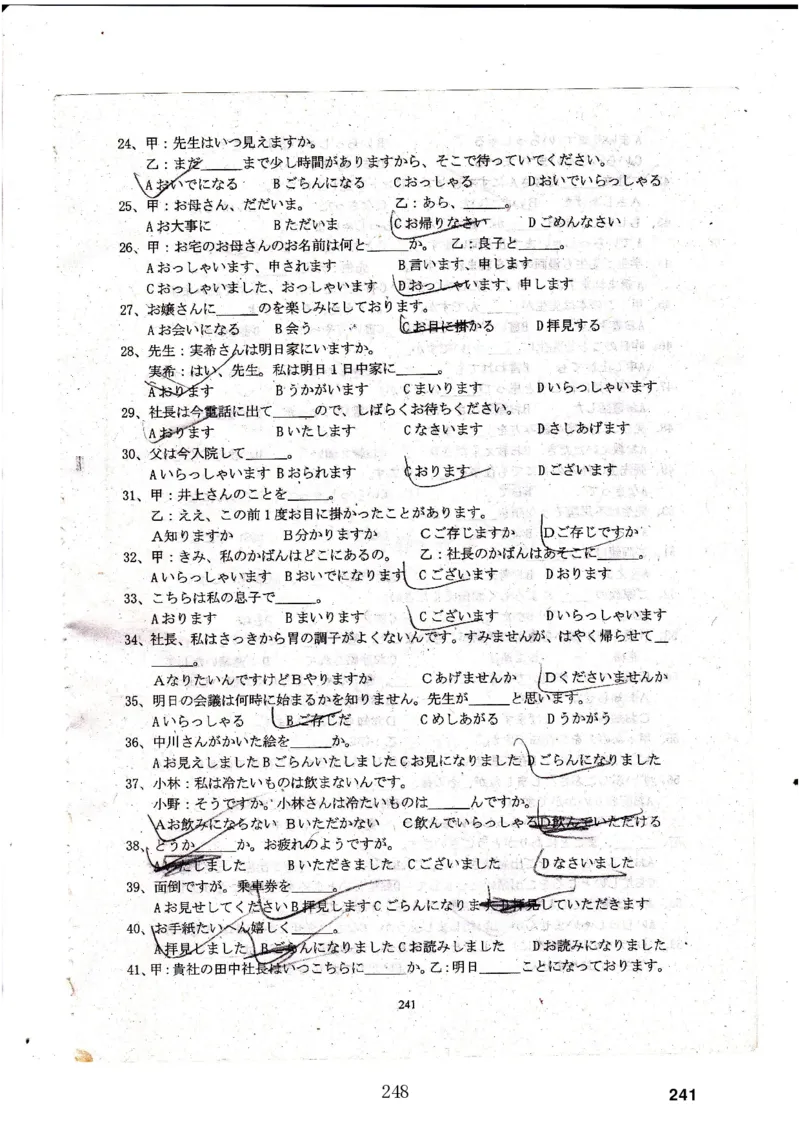 24、甲：先生はいつ見えますか。
乙：まだ____まで少し時間がありますから、そこで待っていてください。
Aおいでになる Bごらんになる Cおっしゃる Dおいでいらっしゃる
25、甲：お母さん、だだいま。 乙：あら、____。
Aお大事に Bただいま Cお帰りなさい Dごめんなさい
26、甲：お宅のお母さんのお名前は何と____か。 乙：良子と____。
Aおっしゃいます、申されます B言います、申します
Cおっしゃいました、おっしゃいます Dおっしゃいます、申します
27、お嬢さんに____のを楽しみにしております。
Aお会いになる B会う Cお目に掛かる D拝見する
28、先生：実希さんは明日家にいますか。
実希：はい、先生。私は明日1日中家に____。
Aおります Bうかがいます Cまいります Dいらっしゃいます
29、社長は今電話に出て____ので、しばらくお待ちください。
Aおります Bいたします Cなさいます Dさしあげます
30、父は今入院して____。
Aいらっしゃいます Bおられます Cおります Dございます
31、甲：井上さんのことを____。
乙：ええ、この前1度お目に掛かったことがあります。
A知りますか B分かりますか Cご存じますか Dご存じですか
32、甲：きみ、私のかばんはどこにあるの。 乙：社長のかばんはあそこに____。
Aいらっしゃいます Bおいでになります Cございます Dおります
33、こちらは私の息子で____。
Aおります Bまいります Cございます Dいらっしゃいます
34、社長、私はさっきから胃の調子がよくないんです。すみませんが、はやく帰らせて__
____。
Aなりたいんですけど Bやりますか Cあげませんか Dくださいませんか
35、明日の会議は何時に始まるかを知りません。先生が____と思います。
Aいらっしゃる Bご存じだ Cめしあがる Dうかがう
36、中川さんがかいた絵を____か。
Aお見えしました Bごらんいたしました Cお見になりました Dごらんになりました
37、小林：私は冷たいものは飲まないんです。
小野：そうですか。小林さんは冷たいものは____んですか。
Aお飲みにならない Bいただかない C飲んでいらっしゃる D飲んでいただける
38、どうか____か。お疲れのようですが。
Aいたしました Bいただきました Cございました Dなさいました
39、面倒ですが。乗車券を____。
Aお見せしてください B拝見します Cごらんになります D拝見していただきます
40、お手紙たいへん嬉しく____。
A拝見しました Bごらんになりました Cお読みしました Dお読みになりました
41、甲：貴社の田中社長はいつこちらに____か。乙：明日____ことになっております。
241
248
241